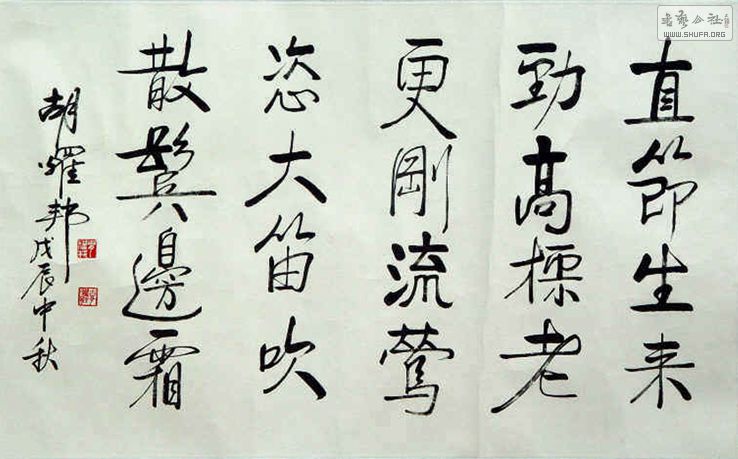 直節生来
勁高標老
更剛流鶯
恣大笛吹
散鬓邊霜
胡耀邦戊辰中秋
书艺公社
WWW.SHUFA.ORG